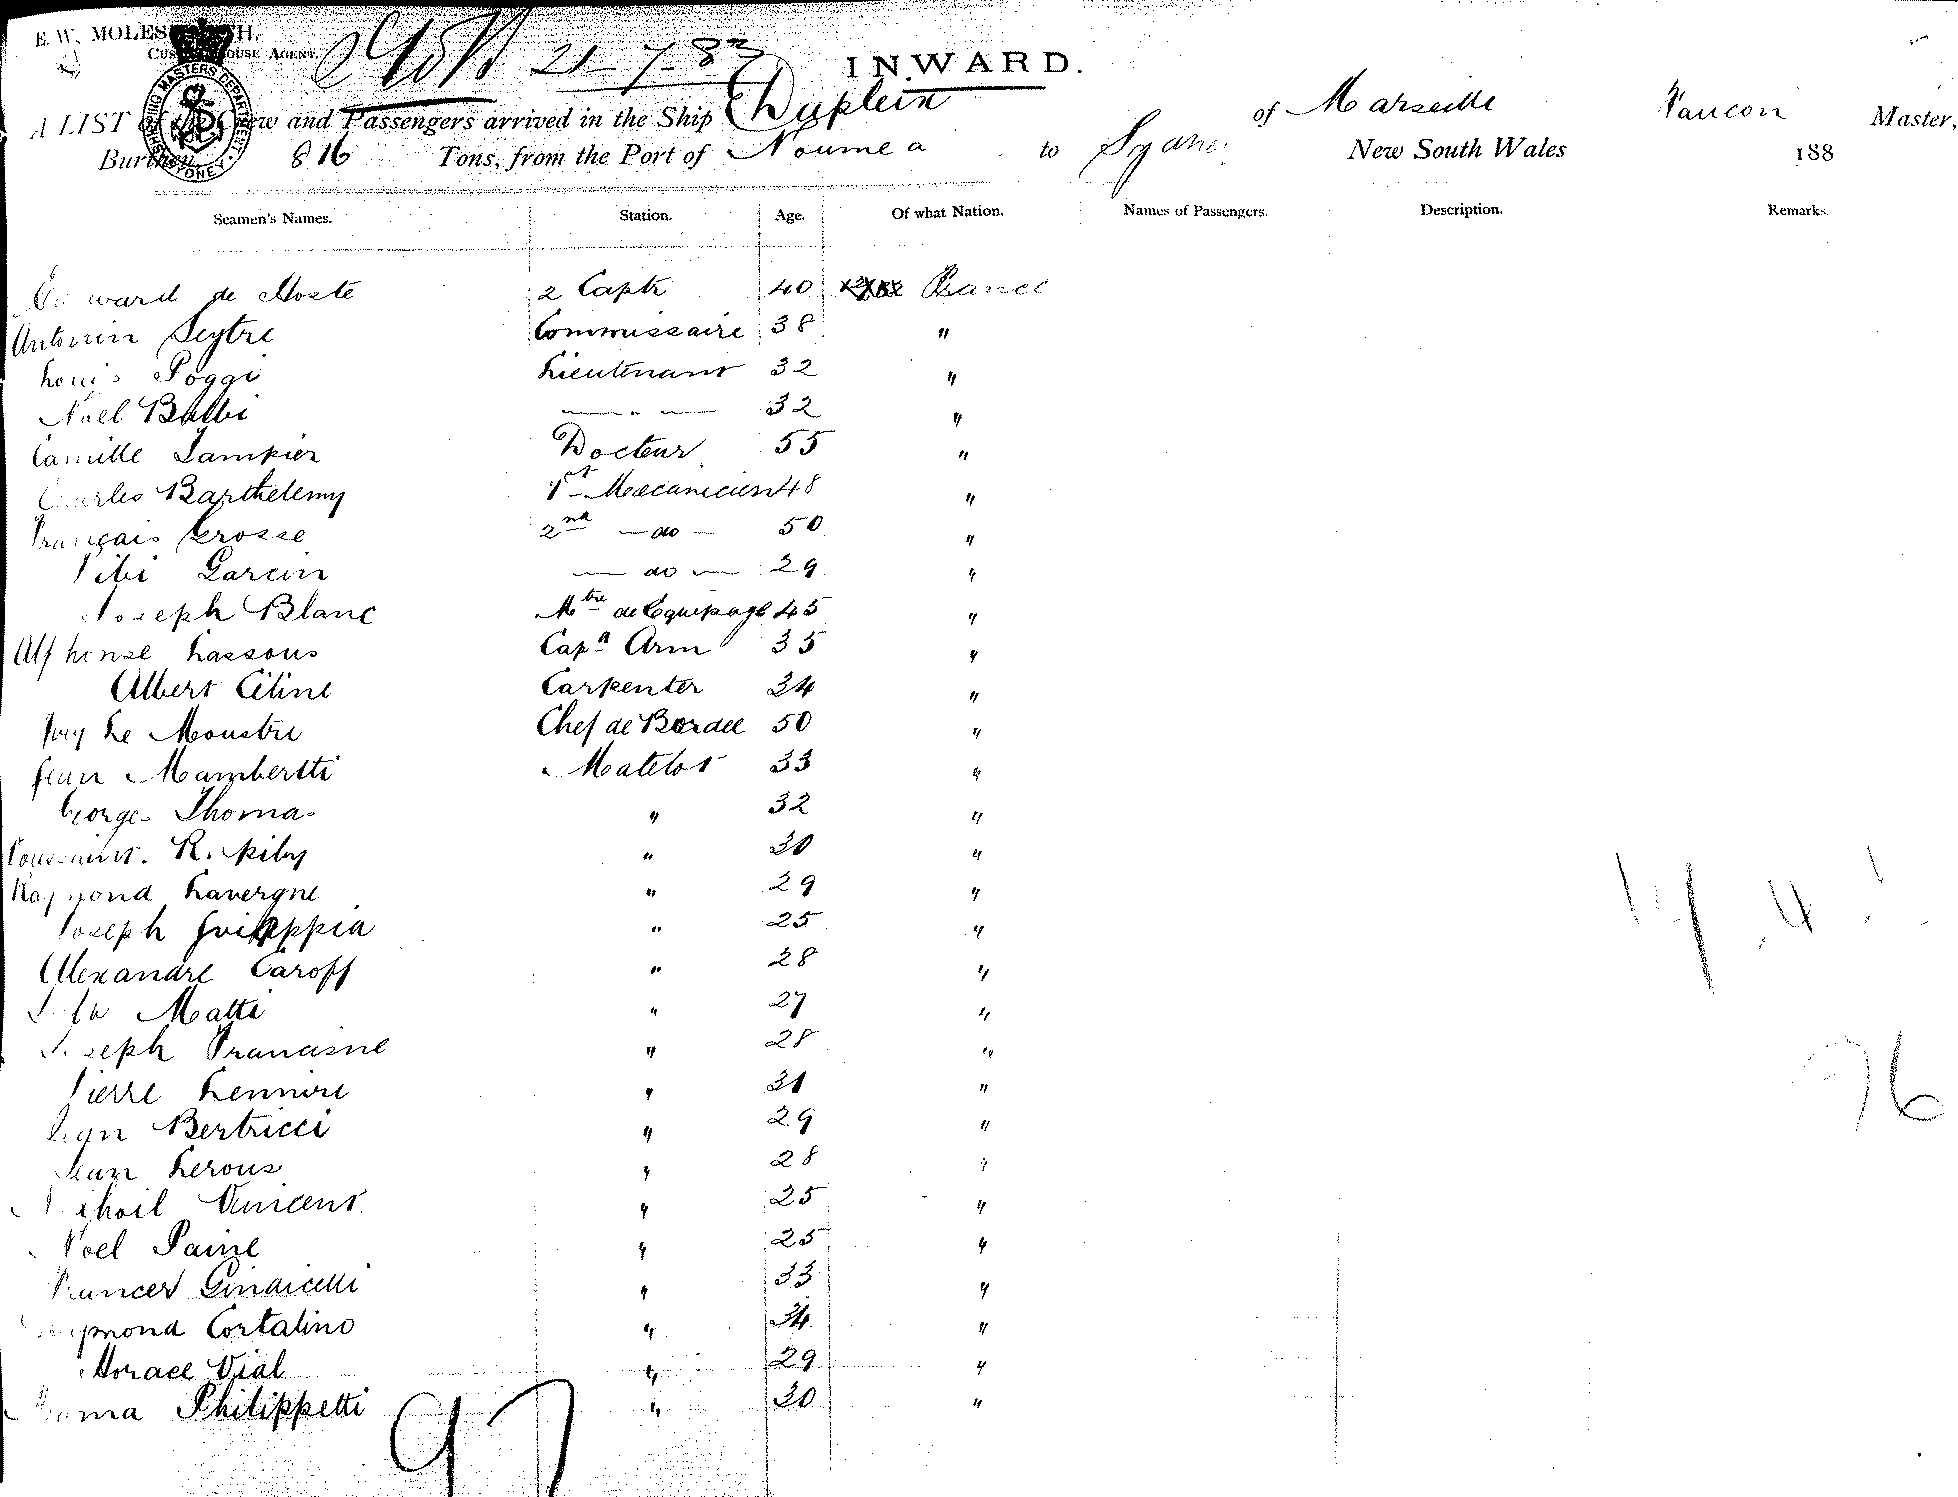 E. W. MOLESWORTH,
CUSTOM HOUSE AGENT.
21-7-83
INWARD.
SHIPPING MASTERS DEPARTMENT SYDNEY
A LIST of the Crew and Passengers arrived in the Ship Dupleix of Marseille Vaucon Master,
Burthen 816 Tons, from the Port of Noumea to Sydney New South Wales 188
Seamen's Names. Station. Age. Of what Nation. Names of Passengers. Description. Remarks.
Edward de Hoste 2 Captn 40 France
Antonin Seytre Commissaire 38 "
Louis Poggi Lieutenant 32 "
Noel Balbi — " — 32 "
Camille Lampier Docteur 55 "
Charles Barthelemy 1st Mecanicien 48 "
Français Crosse 2nd — do — 50 "
Garcin — do — 29 "
Joseph Blanc Mtre de Equipage 45 "
Alphonse Lassous Capn Arm 35 "
Albert Celine Carpenter 34 "
Le Moustre Chef de Bordee 50 "
Jean Mambertti Matelot 33 "
George Thomas " 32 "
Toussaint R. " 30 "
Raymond Lavergne " 29 "
Joseph " 25 "
Alexandre Caroff " 28 "
Matti " 27 "
Joseph " 28 "
Pierre " 31 "
Bertricci " 29 "
Jean Lerous " 28 "
Vincent " 25 "
Noel Paine " 25 "
" 33 "
Raymond Cortalino " 34 "
Horace Vial " 29 "
Philippetti " 30 "
97